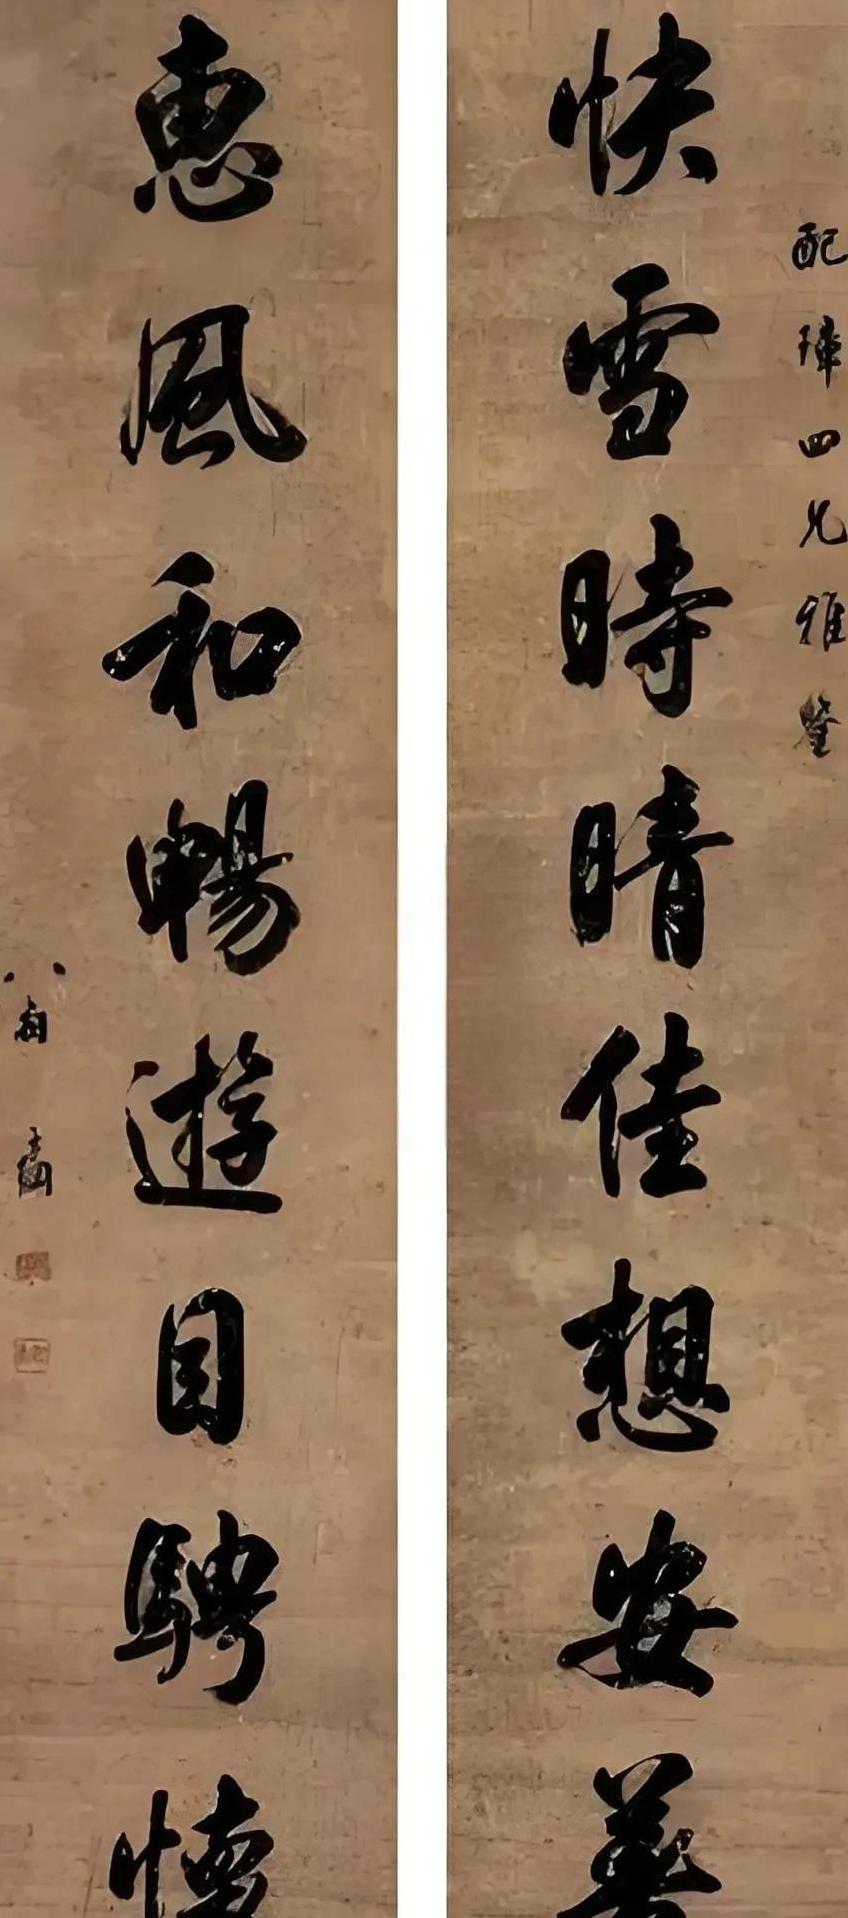 配璋四兄雅鉴
快雪時晴佳想安善
惠風和暢遊目騁懷